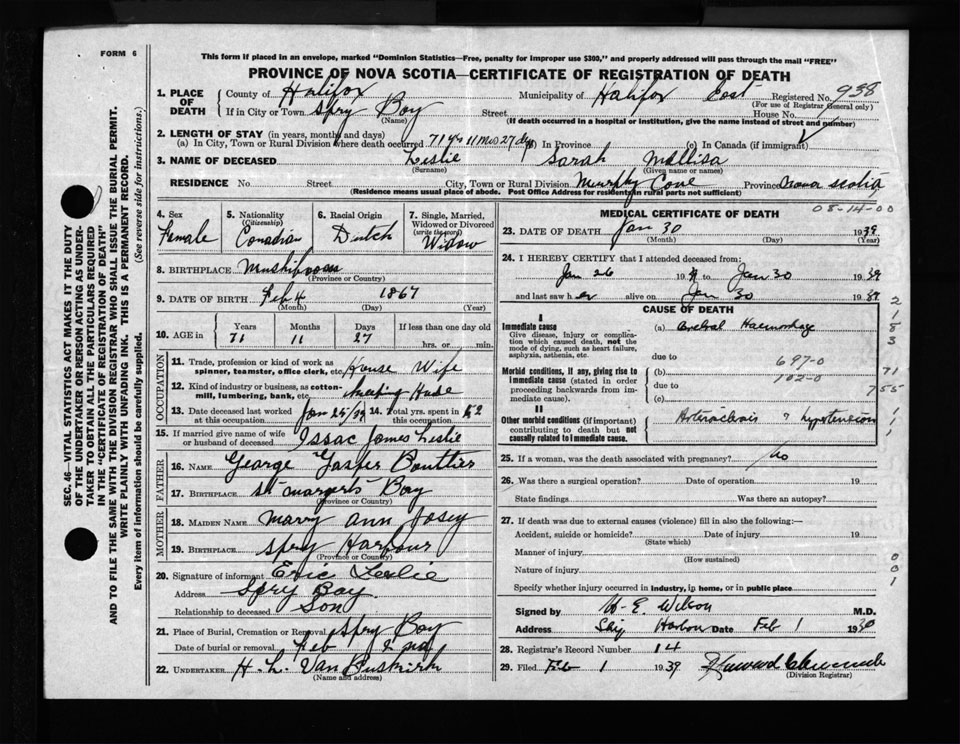 FORM 6
This form if placed in an envelope, marked "Dominion Statistics—Free, penalty for improper use $300," and properly addressed will pass through the mail "FREE"
PROVINCE OF NOVA SCOTIA—CERTIFICATE OF REGISTRATION OF DEATH
SEC. 46—VITAL STATISTICS ACT MAKES IT THE DUTY
OF THE UNDERTAKER OR PERSON ACTING AS UNDER-
TAKER TO OBTAIN ALL THE PARTICULARS REQUIRED
IN THE "CERTIFICATE OF REGISTRATION OF DEATH"
AND TO FILE THE SAME WITH THE DIVISION REGISTRAR WHO SHALL ISSUE THE BURIAL PERMIT.
WRITE PLAINLY WITH UNFADING INK. THIS IS A PERMANENT RECORD.
Every item of information should be carefully supplied. (See reverse side for instructions.)
1. PLACE OF DEATH County of Halifax Municipality of Halifax East Registered No. 938
(For use of Registrar General only)
If in City or Town Spry Bay Street House No.
(Name) (If death occurred in a hospital or institution, give the name instead of street and number)
2. LENGTH OF STAY (in years, months and days)
(a) In City, Town or Rural Division where death occurred 71 yrs 11 Mos 27 dys (b) In Province (c) In Canada (if immigrant)
3. NAME OF DECEASED Leslie Sarah Mallisa
(Surname) (Given name or names)
RESIDENCE No. Street City, Town or Rural Division Murphy Cove Province Nova Scotia
(Residence means usual place of abode. Post Office Address for residents in rural parts not sufficient)
08-14-00
4. Sex Female
5. Nationality (Citizenship) Canadian
6. Racial Origin Dutch
7. Single, Married, Widowed or Divorced (write the word) Widow
8. BIRTHPLACE
(Province or Country)
9. DATE OF BIRTH Feb 4 1867
(Month) (Day) (Year)
10. AGE in Years Months Days If less than one day old
71 11 27 hrs. or min.
OCCUPATION
11. Trade, profession or kind of work as spinner, teamster, office clerk, etc. House Wife
12. Kind of industry or business, as cotton-mill, lumbering, bank, etc. Keeping House
13. Date deceased last worked at this occupation Jan 25/39 14. Total yrs. spent in 52
15. If married give name of wife or husband of deceased Issac James Leslie
FATHER
16. NAME George Yasper Boutlier
17. Birthplace St Margerts Bay
(Province or Country)
MOTHER
18. MAIDEN NAME Marry Ann Josey
19. BIRTHPLACE Spry Harbour
(Province or Country)
20. Signature of informant Eric Leslie
Address Spry Bay
Relationship to deceased Son
21. Place of Burial, Cremation or Removal Spry Bay
Date of burial or removal Feb 2nd
22. UNDERTAKER H. L. VanBuskirk
(Name and address)
MEDICAL CERTIFICATE OF DEATH
23. DATE OF DEATH Jan 30 1939
(Month) (Day) (Year)
24. I HEREBY CERTIFY that I attended deceased from:
Jan 26 19 to Jan 30 1939
and last saw her alive on Jan 30 1939
CAUSE OF DEATH
I
Immediate cause (a) Cerebral Haemorrhage
Give disease, injury or complication which caused death, not the mode of dying, such as heart failure, asphyxia, asthenia, etc.
due to 697-0
Morbid conditions, if any, giving rise to immediate cause (stated in order proceeding backwards from immediate cause). (b) 102-0
due to
(c)
II
Other morbid conditions (if important) contributing to death but not causally related to immediate cause. Arteriosclerosis & hypertension
2
1
8
3
71
755
1
1
1
25. If a woman, was the death associated with pregnancy? No
26. Was there a surgical operation? Date of operation 19
State findings Was there an autopsy?
27. If death was due to external causes (violence) fill in also the following:—
Accident, suicide or homicide? Date of injury 19
(State which)
Manner of injury
(How sustained)
Nature of injury
Specify whether injury occurred in industry, in home, or in public place
0
0
1
Signed by E. Wilson M.D.
Address Ship Harbour Date Feb 1 1930
28. Registrar's Record Number 14
29. Filed Feb 1 1939
(Division Registrar)